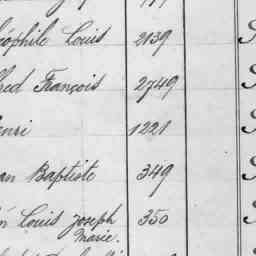 éophile Louis 2139
red François 2749
enri 1221
an Baptiste 349
n Louis joseph 350
Marie.